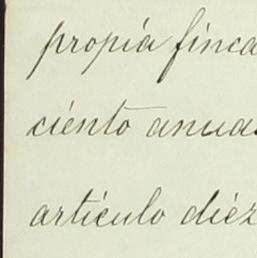 propia finca
ciento anua
artículo diez